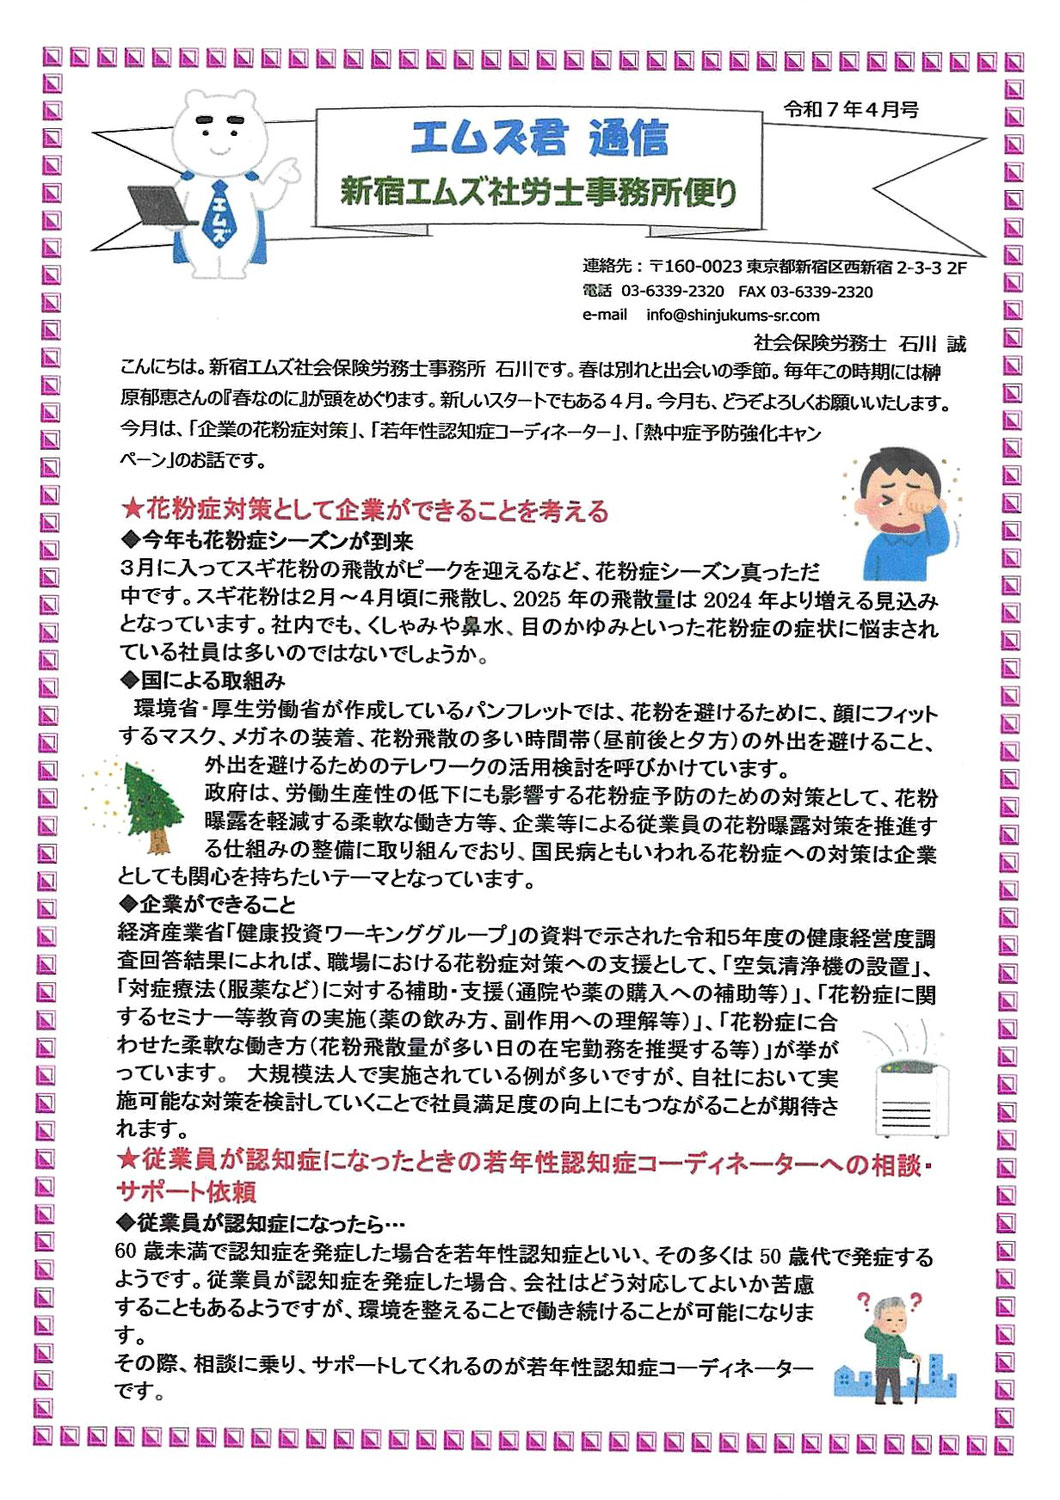 令和７年４月号
エムズ君 通信
新宿エムズ社労士事務所便り
エムズ
連絡先：〒160-0023 東京都新宿区西新宿 2-3-3 2F
電話 03-6339-2320 FAX 03-6339-2320
e-mail info@shinjukums-sr.com
社会保険労務士 石川 誠
こんにちは。新宿エムズ社会保険労務士事務所 石川です。春は別れと出会いの季節。毎年この時期には榊
原郁恵さんの『春なのに』が頭をめぐります。新しいスタートでもある４月。今月も、どうぞよろしくお願いいたします。
今月は、「企業の花粉症対策」、「若年性認知症コーディネーター」、「熱中症予防強化キャン
ペーン」のお話です。
★花粉症対策として企業ができることを考える
◆今年も花粉症シーズンが到来
３月に入ってスギ花粉の飛散がピークを迎えるなど、花粉症シーズン真っただ
中です。スギ花粉は２月～４月頃に飛散し、2025 年の飛散量は 2024 年より増える見込み
となっています。社内でも、くしゃみや鼻水、目のかゆみといった花粉症の症状に悩まされ
ている社員は多いのではないでしょうか。
◆国による取組み
環境省・厚生労働省が作成しているパンフレットでは、花粉を避けるために、顔にフィット
するマスク、メガネの装着、花粉飛散の多い時間帯（昼前後と夕方）の外出を避けること、
外出を避けるためのテレワークの活用検討を呼びかけています。
政府は、労働生産性の低下にも影響する花粉症予防のための対策として、花粉
曝露を軽減する柔軟な働き方等、企業等による従業員の花粉曝露対策を推進す
る仕組みの整備に取り組んでおり、国民病ともいわれる花粉症への対策は企業
としても関心を持ちたいテーマとなっています。
◆企業ができること
経済産業省「健康投資ワーキンググループ」の資料で示された令和５年度の健康経営度調
査回答結果によれば、職場における花粉症対策への支援として、「空気清浄機の設置」、
「対症療法（服薬など）に対する補助・支援（通院や薬の購入への補助等）」、「花粉症に関
するセミナー等教育の実施（薬の飲み方、副作用への理解等）」、「花粉症に合
わせた柔軟な働き方（花粉飛散量が多い日の在宅勤務を推奨する等）」が挙が
っています。 大規模法人で実施されている例が多いですが、自社において実
施可能な対策を検討していくことで社員満足度の向上にもつながることが期待さ
れます。
★従業員が認知症になったときの若年性認知症コーディネーターへの相談・
サポート依頼
◆従業員が認知症になったら…
60 歳未満で認知症を発症した場合を若年性認知症といい、その多くは 50 歳代で発症する
ようです。従業員が認知症を発症した場合、会社はどう対応してよいか苦慮
することもあるようですが、環境を整えることで働き続けることが可能になりま
す。
その際、相談に乗り、サポートしてくれるのが若年性認知症コーディネーター
です。
? ?